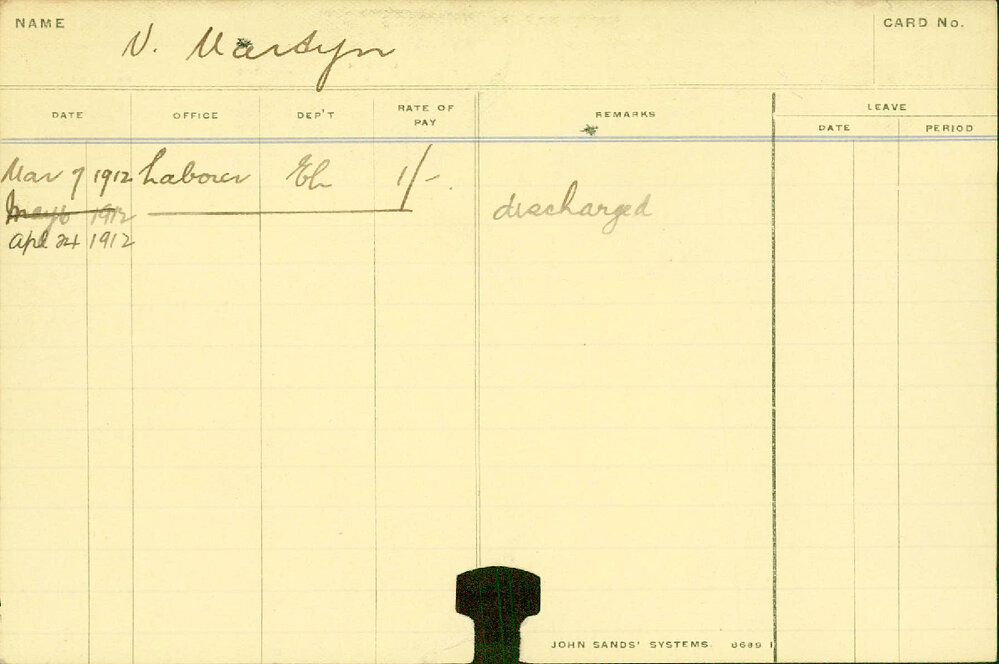 NAME
CARD No.
V. Martyn
DATE OFFICE DEP'T RATE OF PAY REMARKS LEAVE
DATE PERIOD
Mar 7 1912 Labourer 1/-.
May 6 1912 discharged
Apl 24 1912
JOHN SANDS' SYSTEMS. 8689